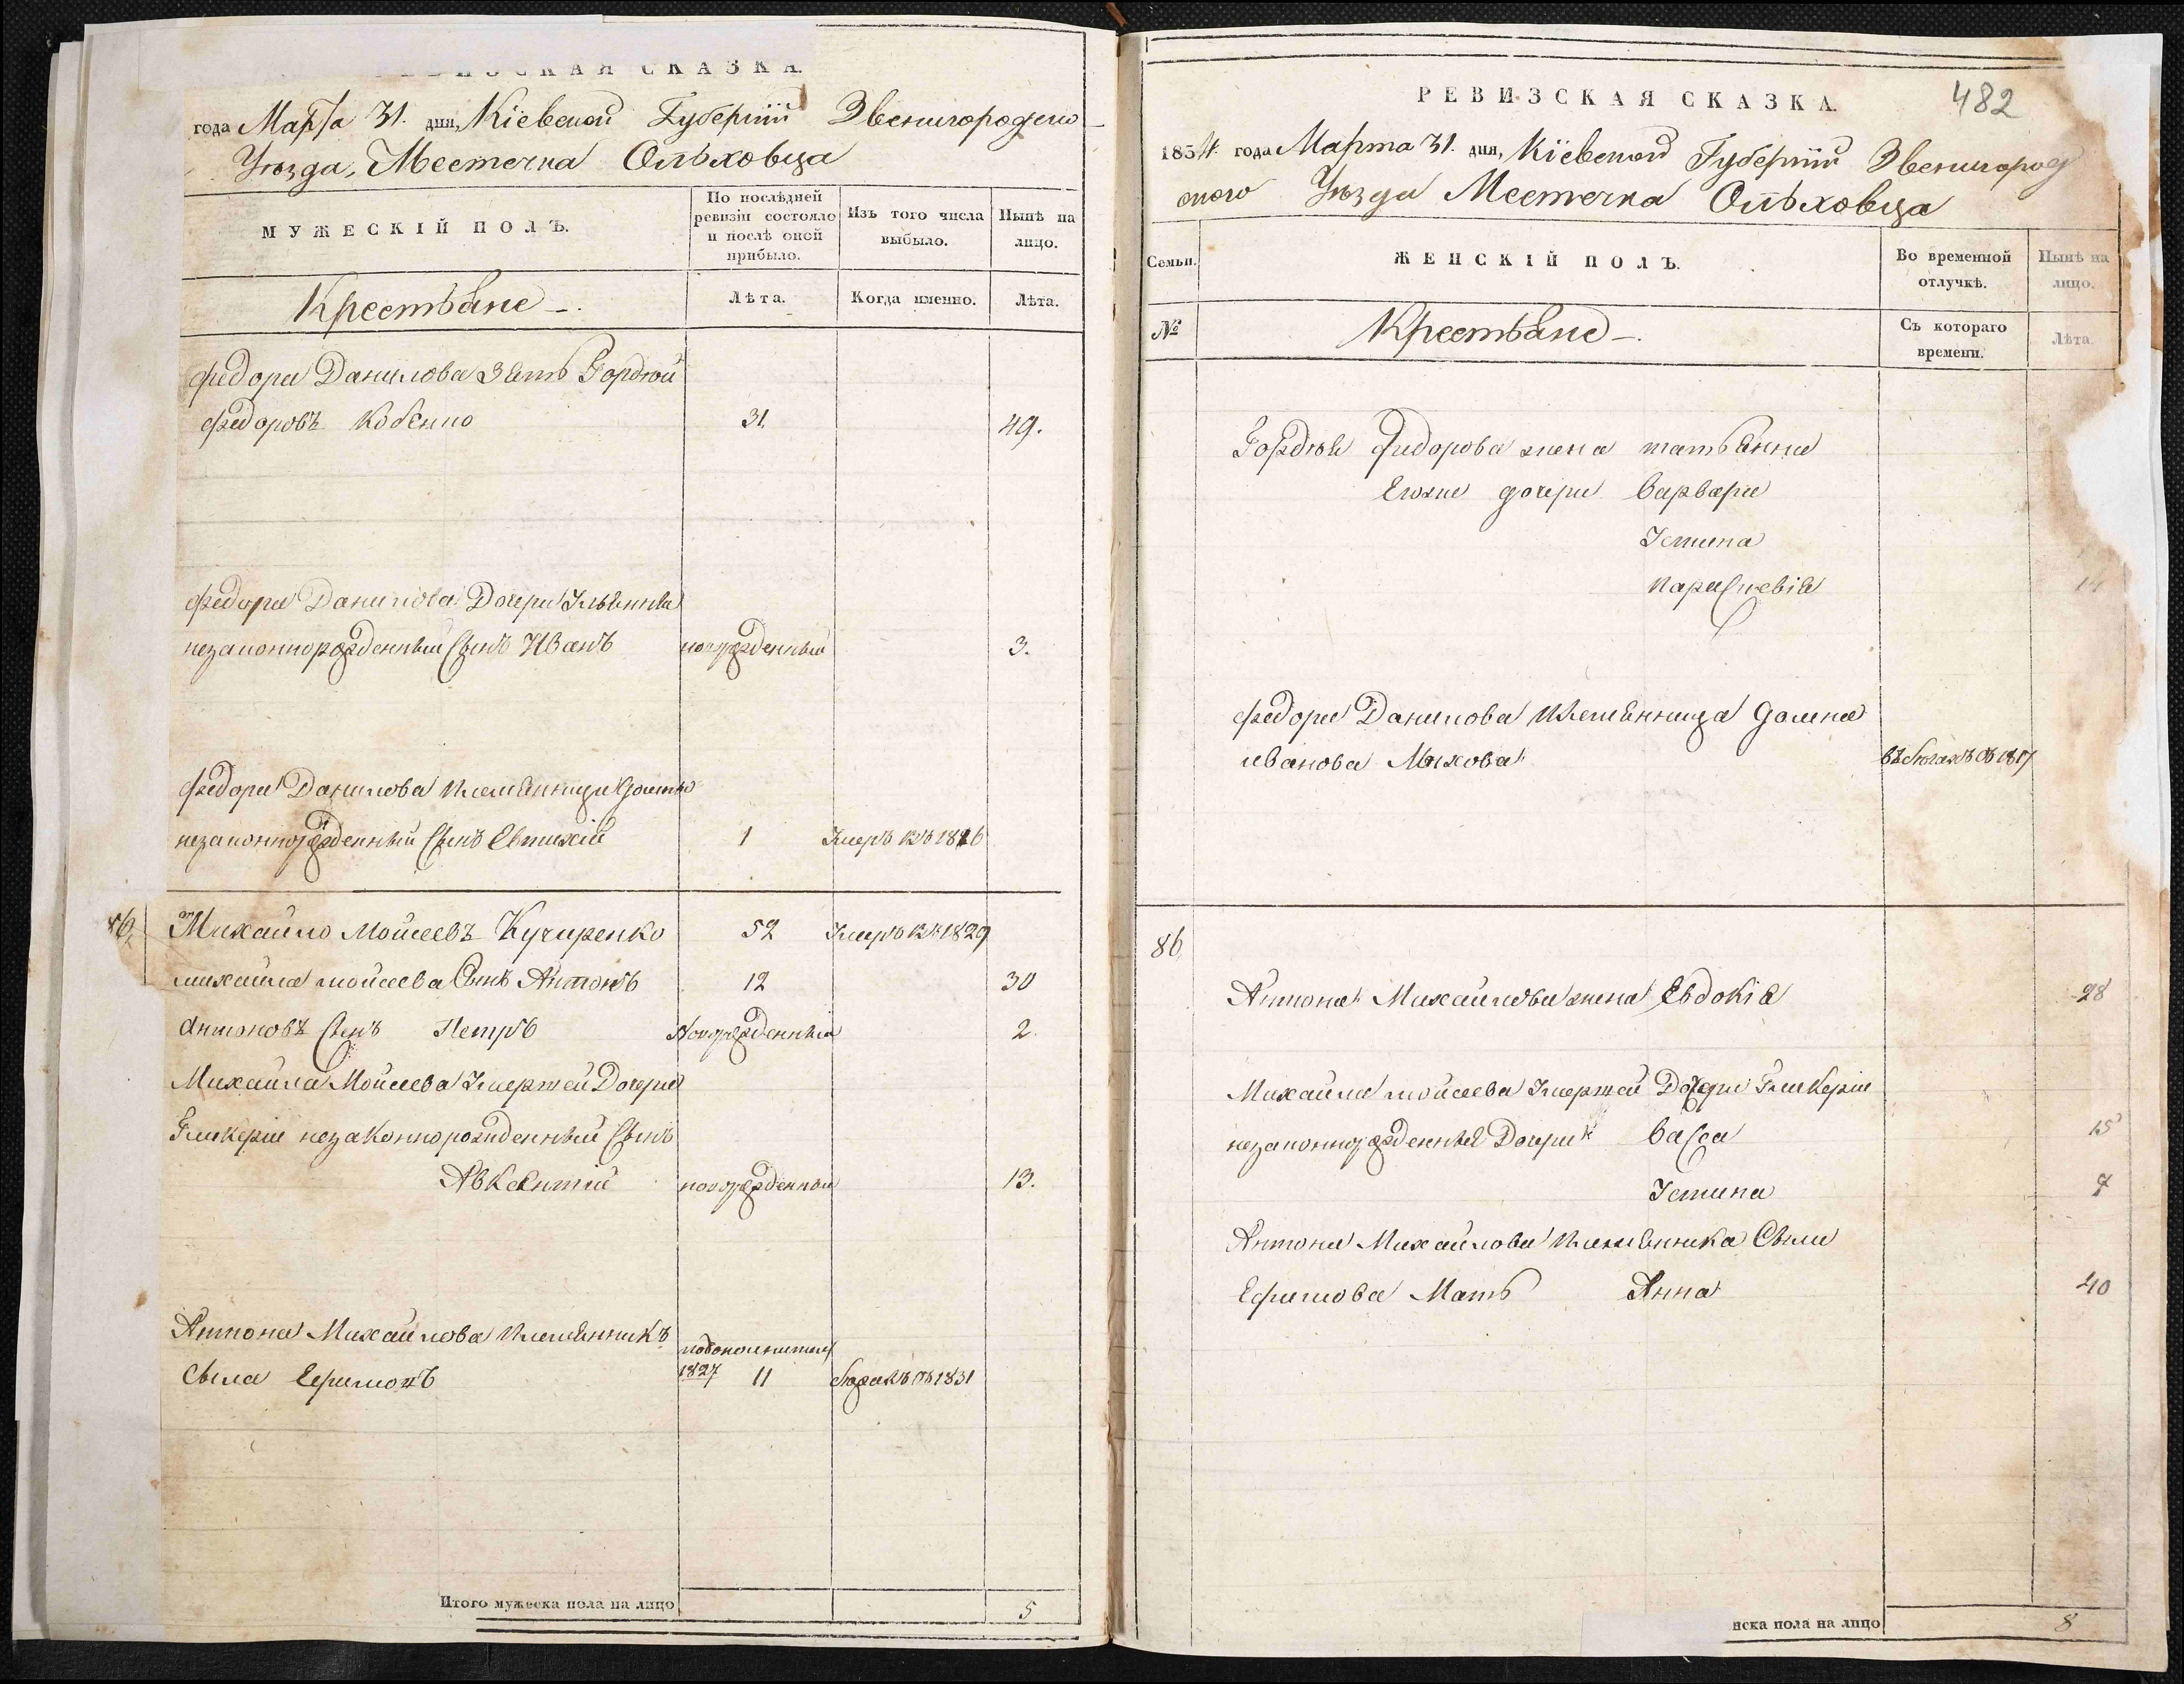 РЕВИЗСКАЯ СКАЗКА.
года Марта 31. дня, Кіевской Губерніи Звенигородско
Уѣзда, Местечка Ольховца
МУЖЕСКІЙ ПОЛЪ.
По послѣдней ревизіи состояло и послѣ оной прибыло.
Изъ того числа выбыло.
Нынѣ на лицо.
Крестьяне -.
Лѣта.
Когда именно.
Лѣта.
Федора Данилова Зять Гордѣй
Федоровъ Кобенко 31. 49.
Федора Данилова Дочери
незаконнорожденный Сынъ Иванъ новорожденный 3.
Федора Данилова племянницы Домны
незаконнорожденный Сынъ Евтихій 1 Умеръ въ 1826
Михайло Мойсеевъ Кучеренко 52 Умеръ въ 1829
михайла мойсеева Сынъ Антонъ 12 30
Антоновъ Сынъ Петръ Новорожденный 2.
Михайла Мойсеева Умершей Дочери
Гликеріи незаконнорожденный Сынъ
Авксентій новорожденный 13.
Антона Михайлова племянникъ
Савла Ефимовъ 1827 11 въ 1831
Итого мужеска пола на лицо 5
482
РЕВИЗСКАЯ СКАЗКА.
1834. года Марта 31. дня, Кіевской Губерніи Звенигород
ского Уѣзда Местечка Ольховца
Семьи.
ЖЕНСКІЙ ПОЛЪ.
Во временной отлучкѣ.
Нынѣ на лицо.
№
Крестьяне -.
Съ котораго времени.
Лѣта.
Гордѣя Федорова жена татьянна
Егоже дочери варвара
Устина
параскевія 14
Федора Данилова племянница домна
иванова Махова въ бѣгахъ съ 1817
86
Антона Михайлова жена Евдокія 28
Михайла мойсеева Умершей Дочери Гликеріи
незаконнорожденныя Дочери васса 15
Устина 7
Антона Михайлова племянника Савлы
Ефимова Мать Анна 40
нска пола на лицо 8